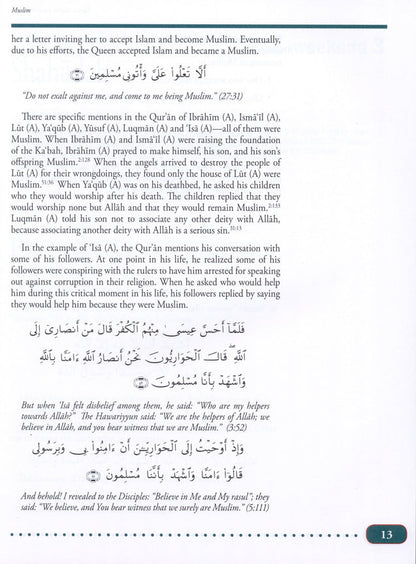 Muslim
her a letter inviting her to accept Islam and become Muslim. Eventually,
due to his efforts, the Queen accepted Islam and became a Muslim.
أَلَّا تَعْلُوا۟ عَلَىَّ وَأْتُونِى مُسْلِمِينَ ۝٣١
“Do not exalt against me, and come to me being Muslim.” (27:31)
There are specific mentions in the Qur’ān of Ibrāhīm (A), Ismā‘īl (A),
Lūt (A), Ya‘qūb (A), Yūsuf (A), Luqmān (A) and ‘Isā (A)—all of them were
Muslim. When Ibrāhīm (A) and Ismā‘īl (A) were raising the foundation
of the Ka‘bah, Ibrāhīm (A) prayed to make himself, his son, and his son’s
offspring Muslim.2:128 When the angels arrived to destroy the people of
Lūt (A) for their wrongdoings, they found only the house of Lūt (A) were
Muslim.51:36 When Ya‘qūb (A) was on his deathbed, he asked his children
who they would worship after his death. The children replied that they
would worship none but Allāh and that they would remain Muslim.2:133
Luqmān (A) told his son not to associate any other deity with Allāh,
because associating another deity with Allāh is a serious sin.31:13
In the example of ‘Isā (A), the Qur’ān mentions his conversation with
some of his followers. At one point in his life, he realized some of his
followers were conspiring with the rulers to have him arrested for speaking
out against corruption in their religion. When he asked who would help
him during this critical moment in his life, his followers replied by saying
they would help him because they were Muslim.
فَلَمَّآ أَحَسَّ عِيسَىٰ مِنْهُمُ ٱلْكُفْرَ قَالَ مَنْ أَنصَارِىٓ إِلَى
ٱللَّهِ ۖ قَالَ ٱلْحَوَارِيُّونَ نَحْنُ أَنصَارُ ٱللَّهِ ءَامَنَّا بِٱللَّهِ
وَٱشْهَدْ بِأَنَّا مُسْلِمُونَ ۝٥٢
But when ‘Isā felt disbelief among them, he said: “Who are my helpers
towards Allāh?” The Hawariyyun said: “We are the helpers of Allāh; we
believe in Allāh, and you bear witness that we are Muslim.” (3:52)
وَإِذْ أَوْحَيْتُ إِلَى ٱلْحَوَارِيِّـۧنَ أَنْ ءَامِنُوا۟ بِى وَبِرَسُولِى
قَالُوٓا۟ ءَامَنَّا وَٱشْهَدْ بِأَنَّنَا مُسْلِمُونَ ۝١١١
And behold! I revealed to the Disciples: “Believe in Me and My rasul”; they
said: “We believe, and You bear witness that we surely are Muslim.” (5:111)
13